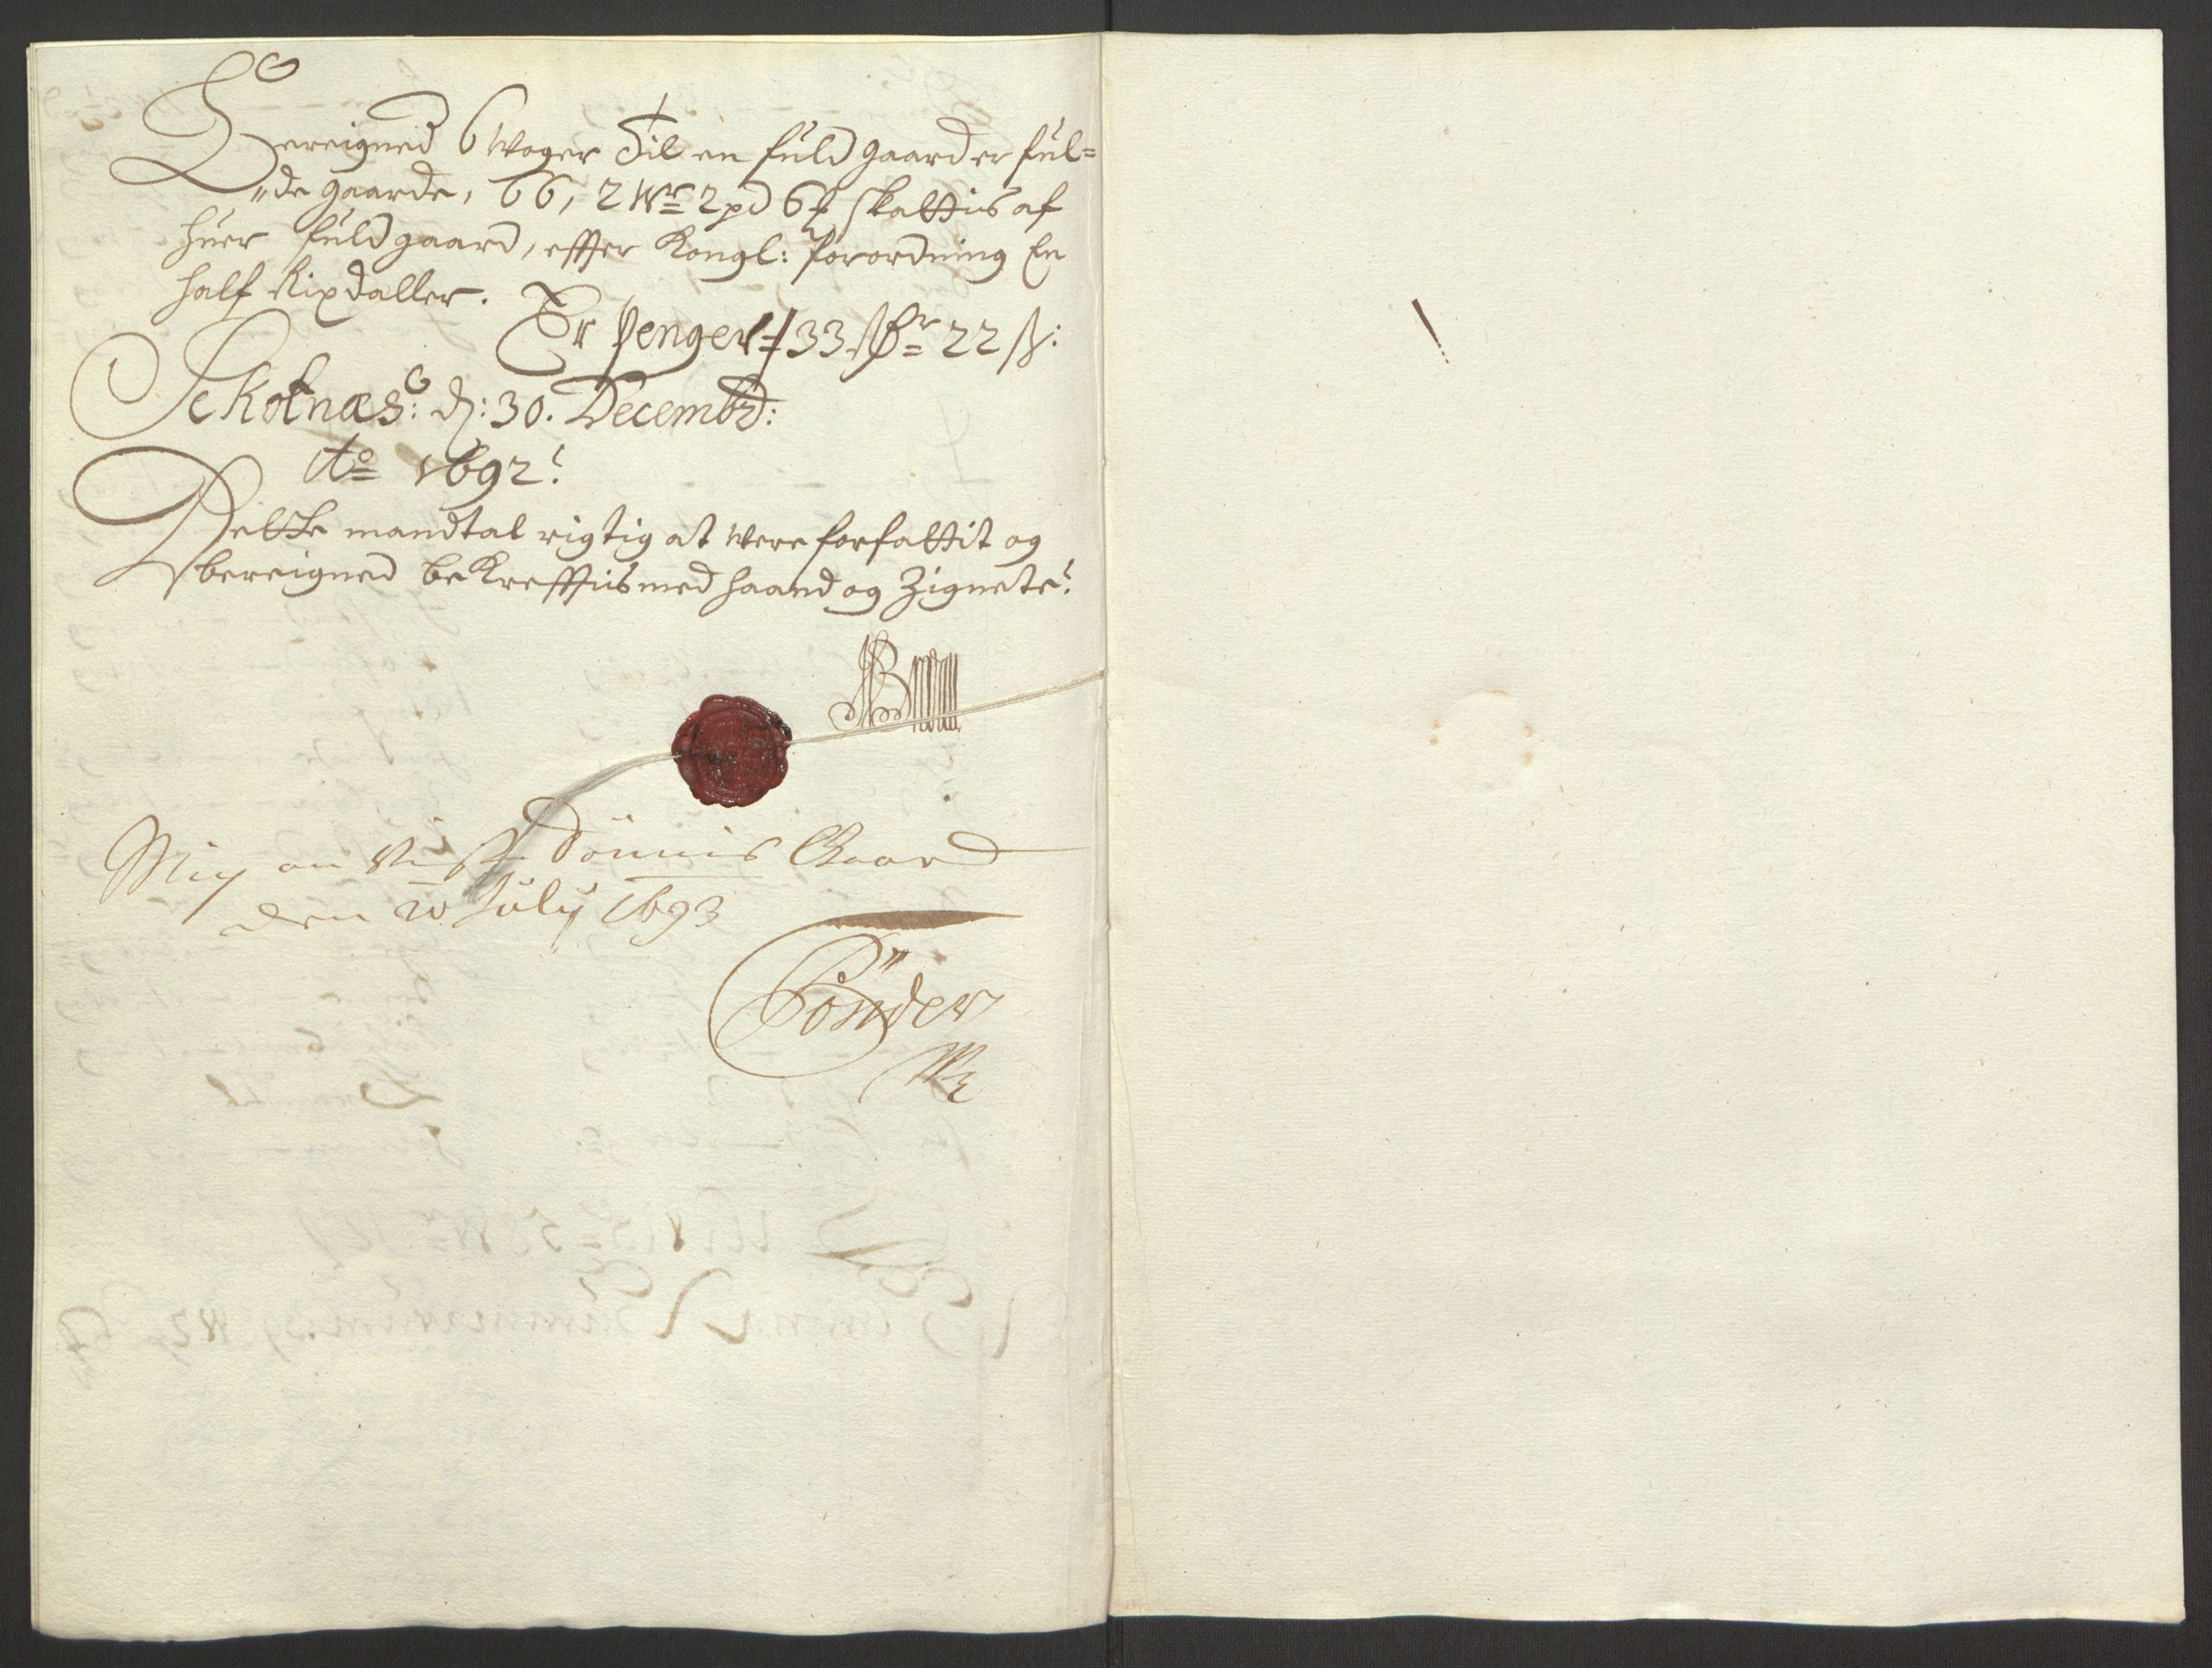 Bereigned 6 Woger Til en fuld gaard er ful=
„de gaarde, 66, 2 Wr 2 pd 6 skattis af
huer fuld gaard, effter Kongl: forordning En
half Rixdaller.
Er Penger 33 Rdr 22 ß:
Schotnæs: d: 30. Decembr:
Ao 1692.
Dette mandtal rigtig at were forfattit og
bereigned bekrefftis med haand og Zignete.
Dönnis Gaard
den 20 July 1693
Tönder